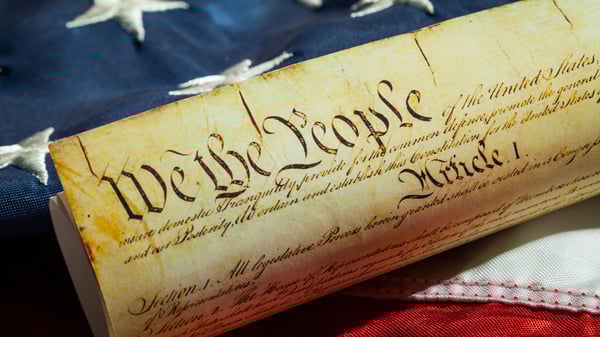 We the People of the United States,
insure domestic Tranquility, provide for the common defence, promote the general
and our Posterity, do ordain and establish this Constitution for the United States
Article I.
Section. 1. All legislative Powers herein granted shall be vested in a Congress
of Representatives.
Section. 2. The House of Representatives shall be composed of